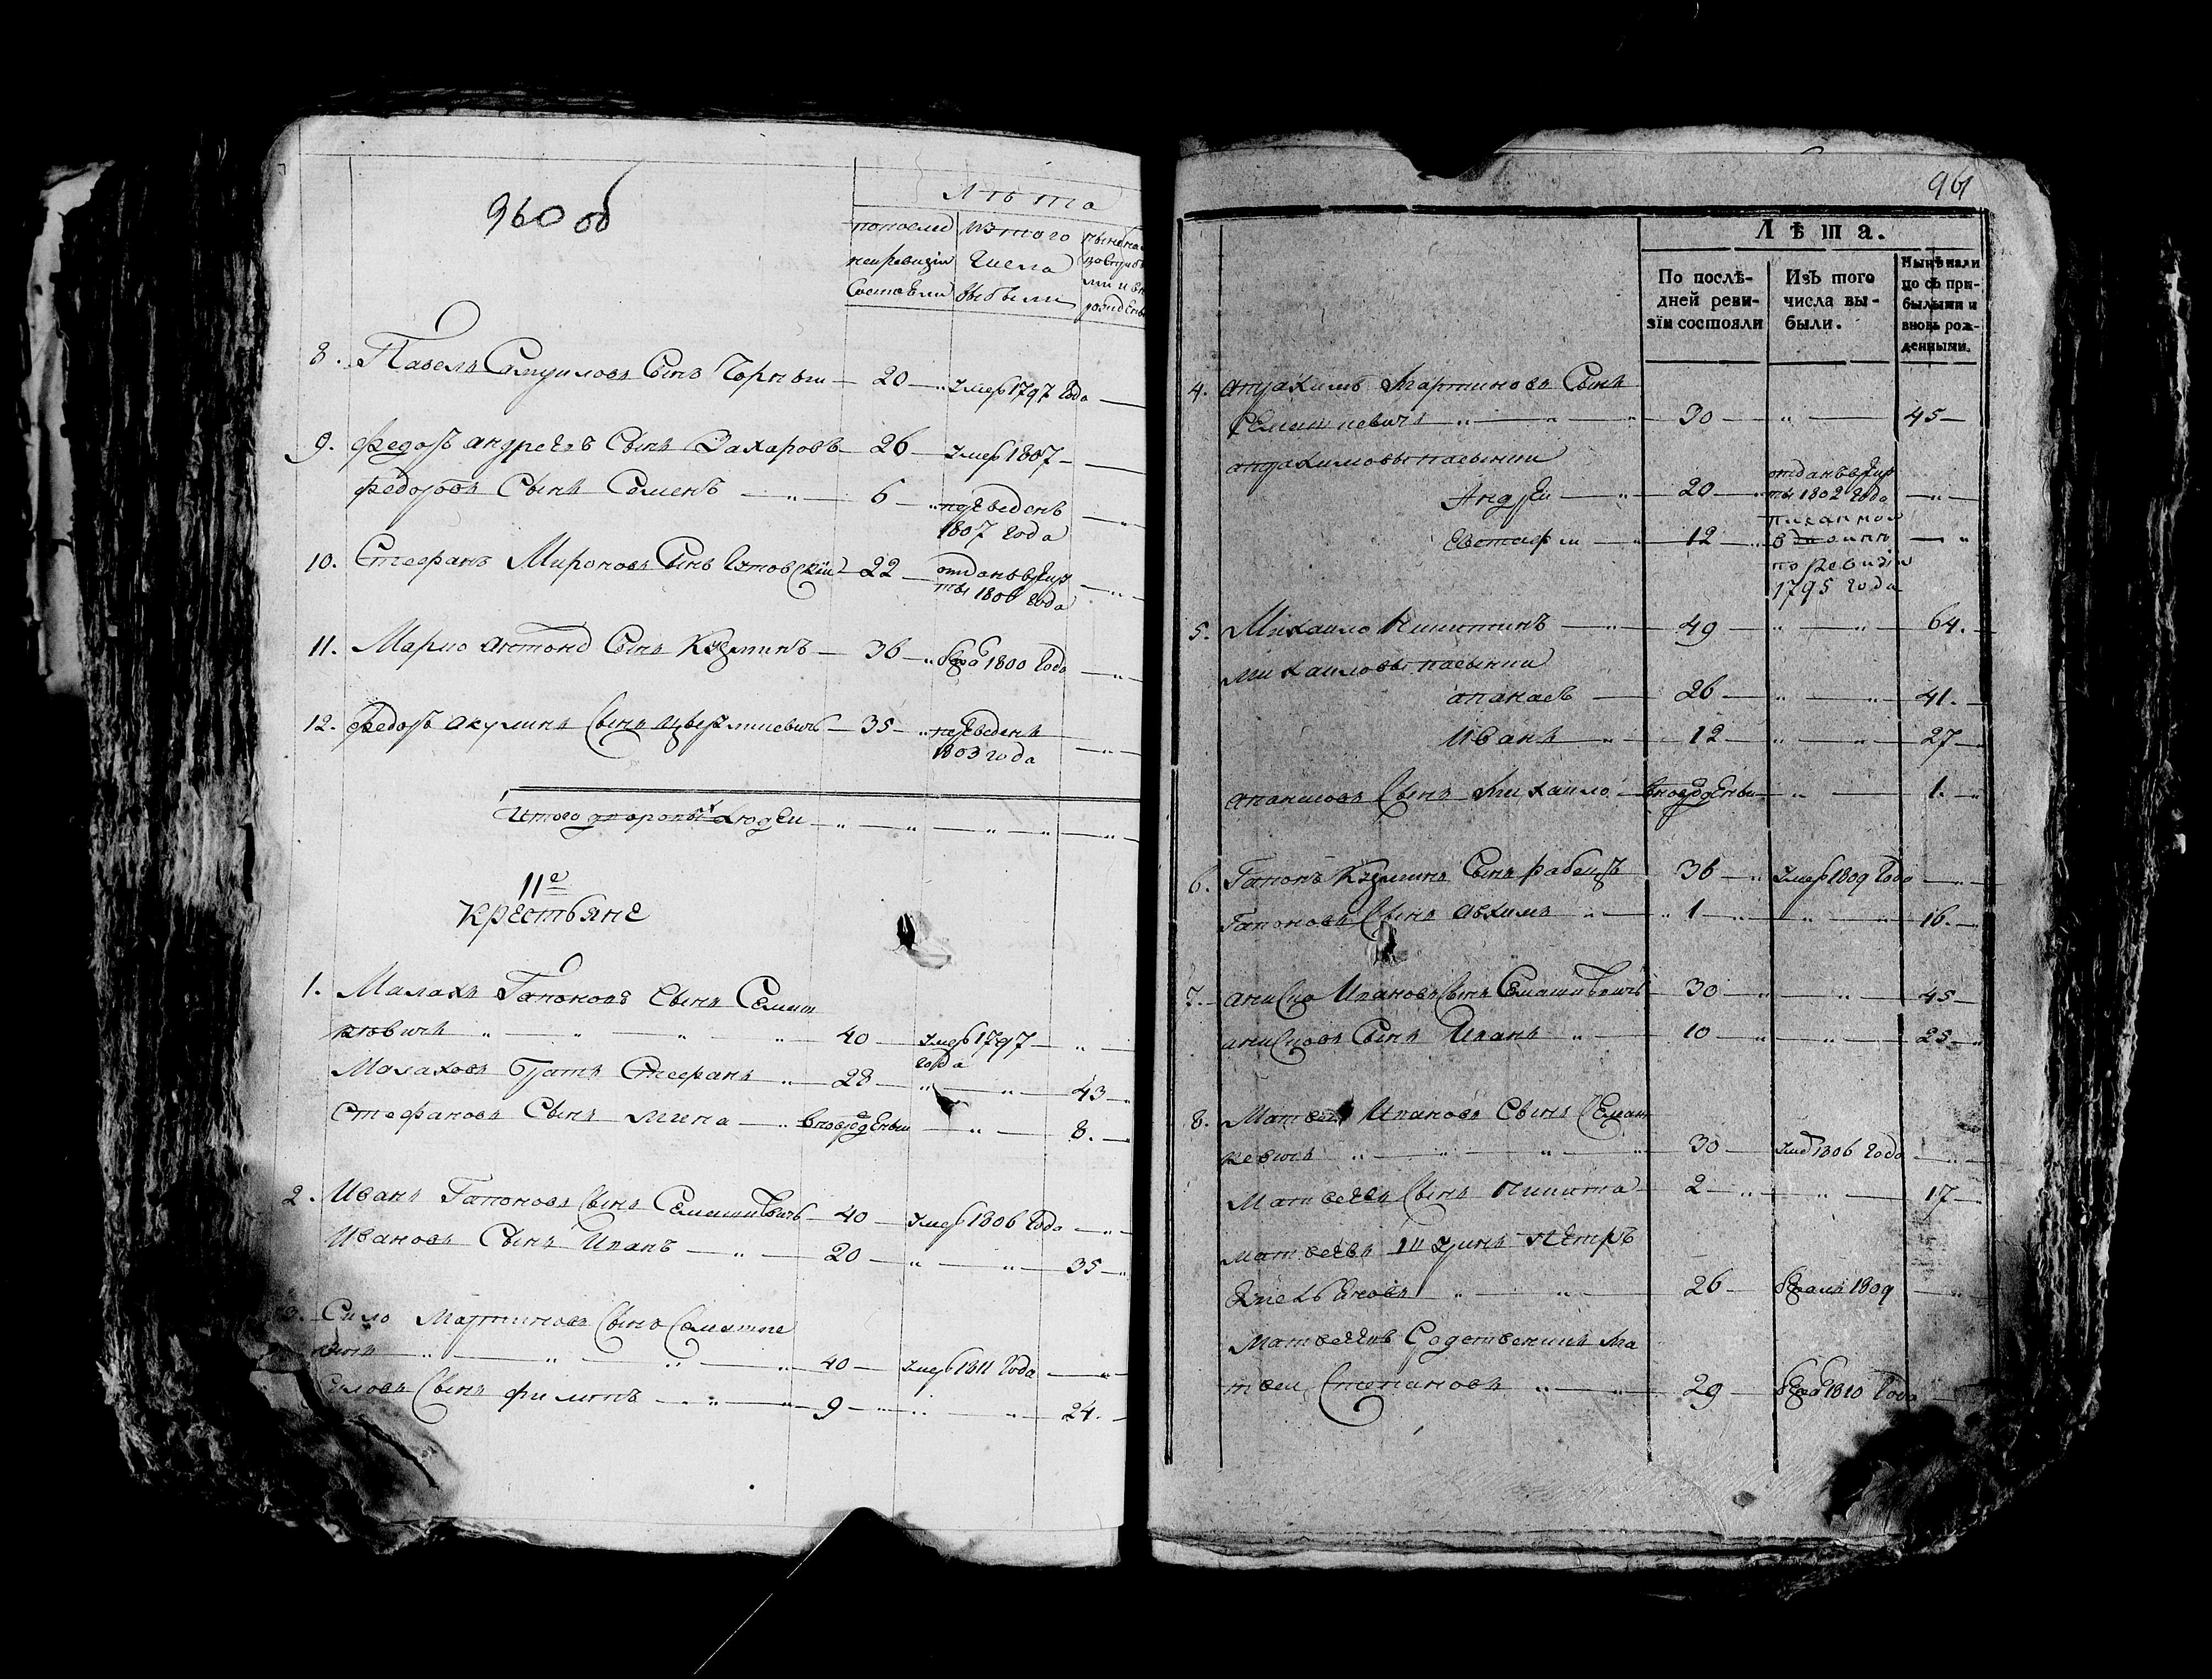 960 об
Лѣта
по послед
ней ревизiи
состояли
из того
числа
выбыли
8. Павелъ Самуиловъ Сынъ Чорнъш — 20 — умер 1797 года —
9. Федоръ андреевъ Сынъ Захаровъ — 26 — умер 1807 —
Федоровъ Сынъ Семенъ — 6 — переведенъ
1807 года
10. Стефанъ Мироновъ Сынъ — 22 — отданъ в рекр
ты 1806 года
11. Марко Сынъ Кузминъ — 36 — 1800 года
12. Федоръ акулинъ Сынъ — 35 — переведенъ
1803 года
Итого дворовых людей
11е
Крестьяне
1. Малахъ Гапоновъ Сынъ Семаш
кевичъ 40 умер 1797
года
Малаховъ братъ Стефанъ 28 43
Стефановъ Сынъ мина — вноврожденны — 8.
2. Иванъ Гапоновъ Сынъ Семашкевичъ — 40 — умер 1806 года
Ивановъ Сынъ Иванъ — 20 — 35
3. Сило Мартиновъ Сынъ Семашке
вичъ 40 — умер 1811 года
Силовъ Сынъ филипъ 9 24.
961
Лѣта.
По послѣ-
дней реви-
зїи состояли
Изъ того
числа вы-
были.
Нынѣ нали
цо съ при-
былыми и
вновь рож-
денными.
4. Мартиновъ Сынъ
Семашкевичъ 30 45
пасынки
Андрей — 20 — отданъ в рекр
ты 1802 года
Евстафи — 12
по ревизiи
1795 года
5. Михайло Никитинъ — 49 64.
михайловы пасынки
апанасъ — 26 41.
Иванъ 12 27
апанасовъ Сынъ Михайло вноврожденны 1.
6. Гапонъ Кузминъ Сынъ рабецъ 36 — умер 1809 года
Гапоновъ Сынъ авхимъ 1 16.
7. аниско Ивановъ Сынъ Семашкевичъ 30 45
анисковъ Сынъ Иванъ 10 25
8. Матвей Ивановъ Сынъ Семаш
кевичъ 30 умер 1806 года
Матвеевъ Сынъ никита 2 17
матвеевъ шуринъ Петръ
26 1809
Матвеевъ Содственникъ Ма
твей Степановъ 29 1810 года